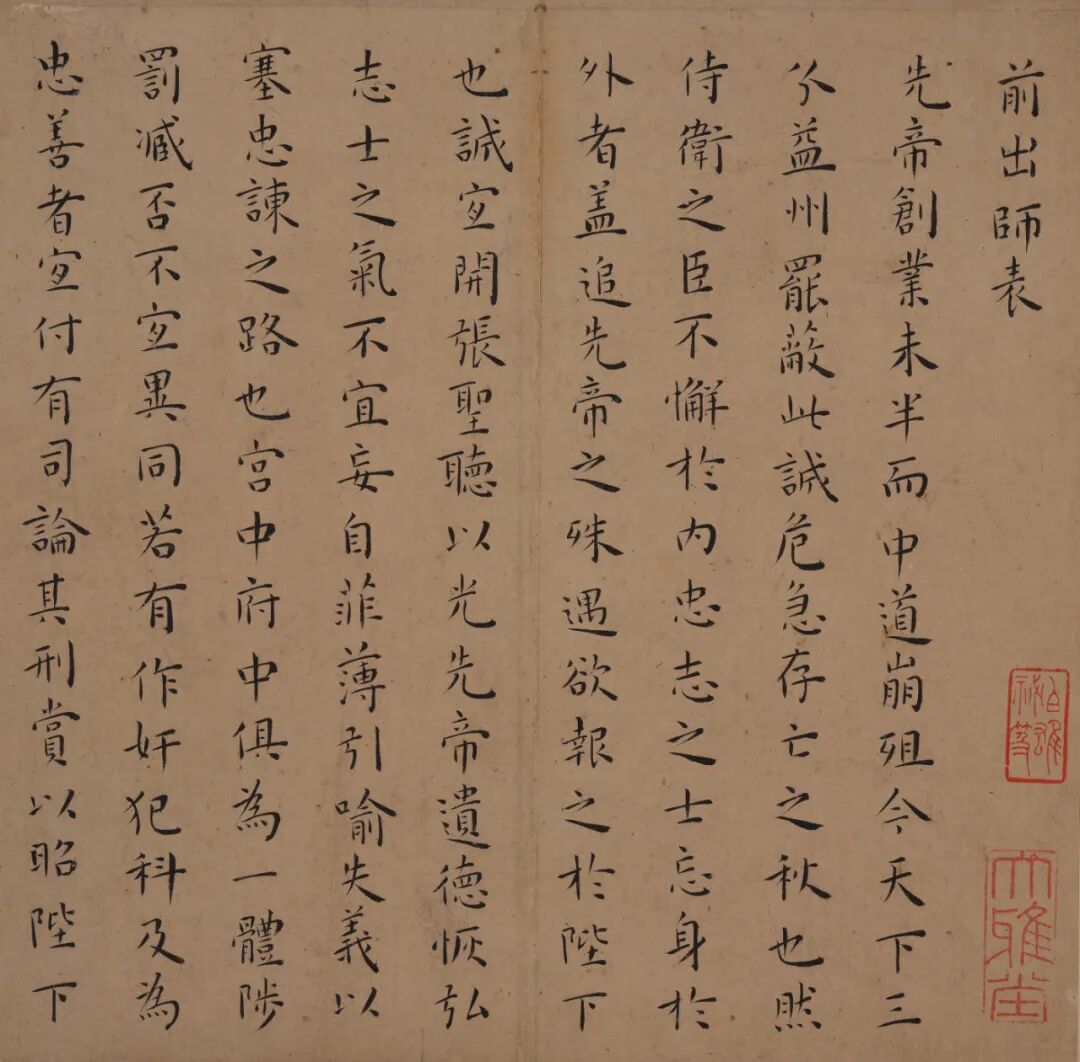 前出師表
先帝創業未半而中道崩殂今天下三
分益州罷蔽此誠危急存亡之秋也然
侍衛之臣不懈於内忠志之士忘身於
外者盖追先帝之殊遇欲報之於陛下
也誠宜開張聖聽以光先帝遺德恢弘
志士之氣不宜妄自菲薄引喻失義以
塞忠諫之路也宮中府中俱為一體陟
罰臧否不宜異同若有作奸犯科及為
忠善者宜付有司論其刑賞以昭陛下
大雅堂